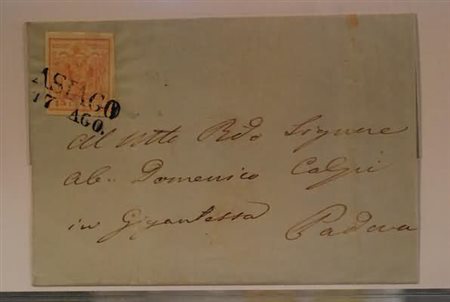 ASIAGO
17 AGO.
Al Molto Rdo Signore
Ab. Domenico Calgri
in Gigantessa
Padova